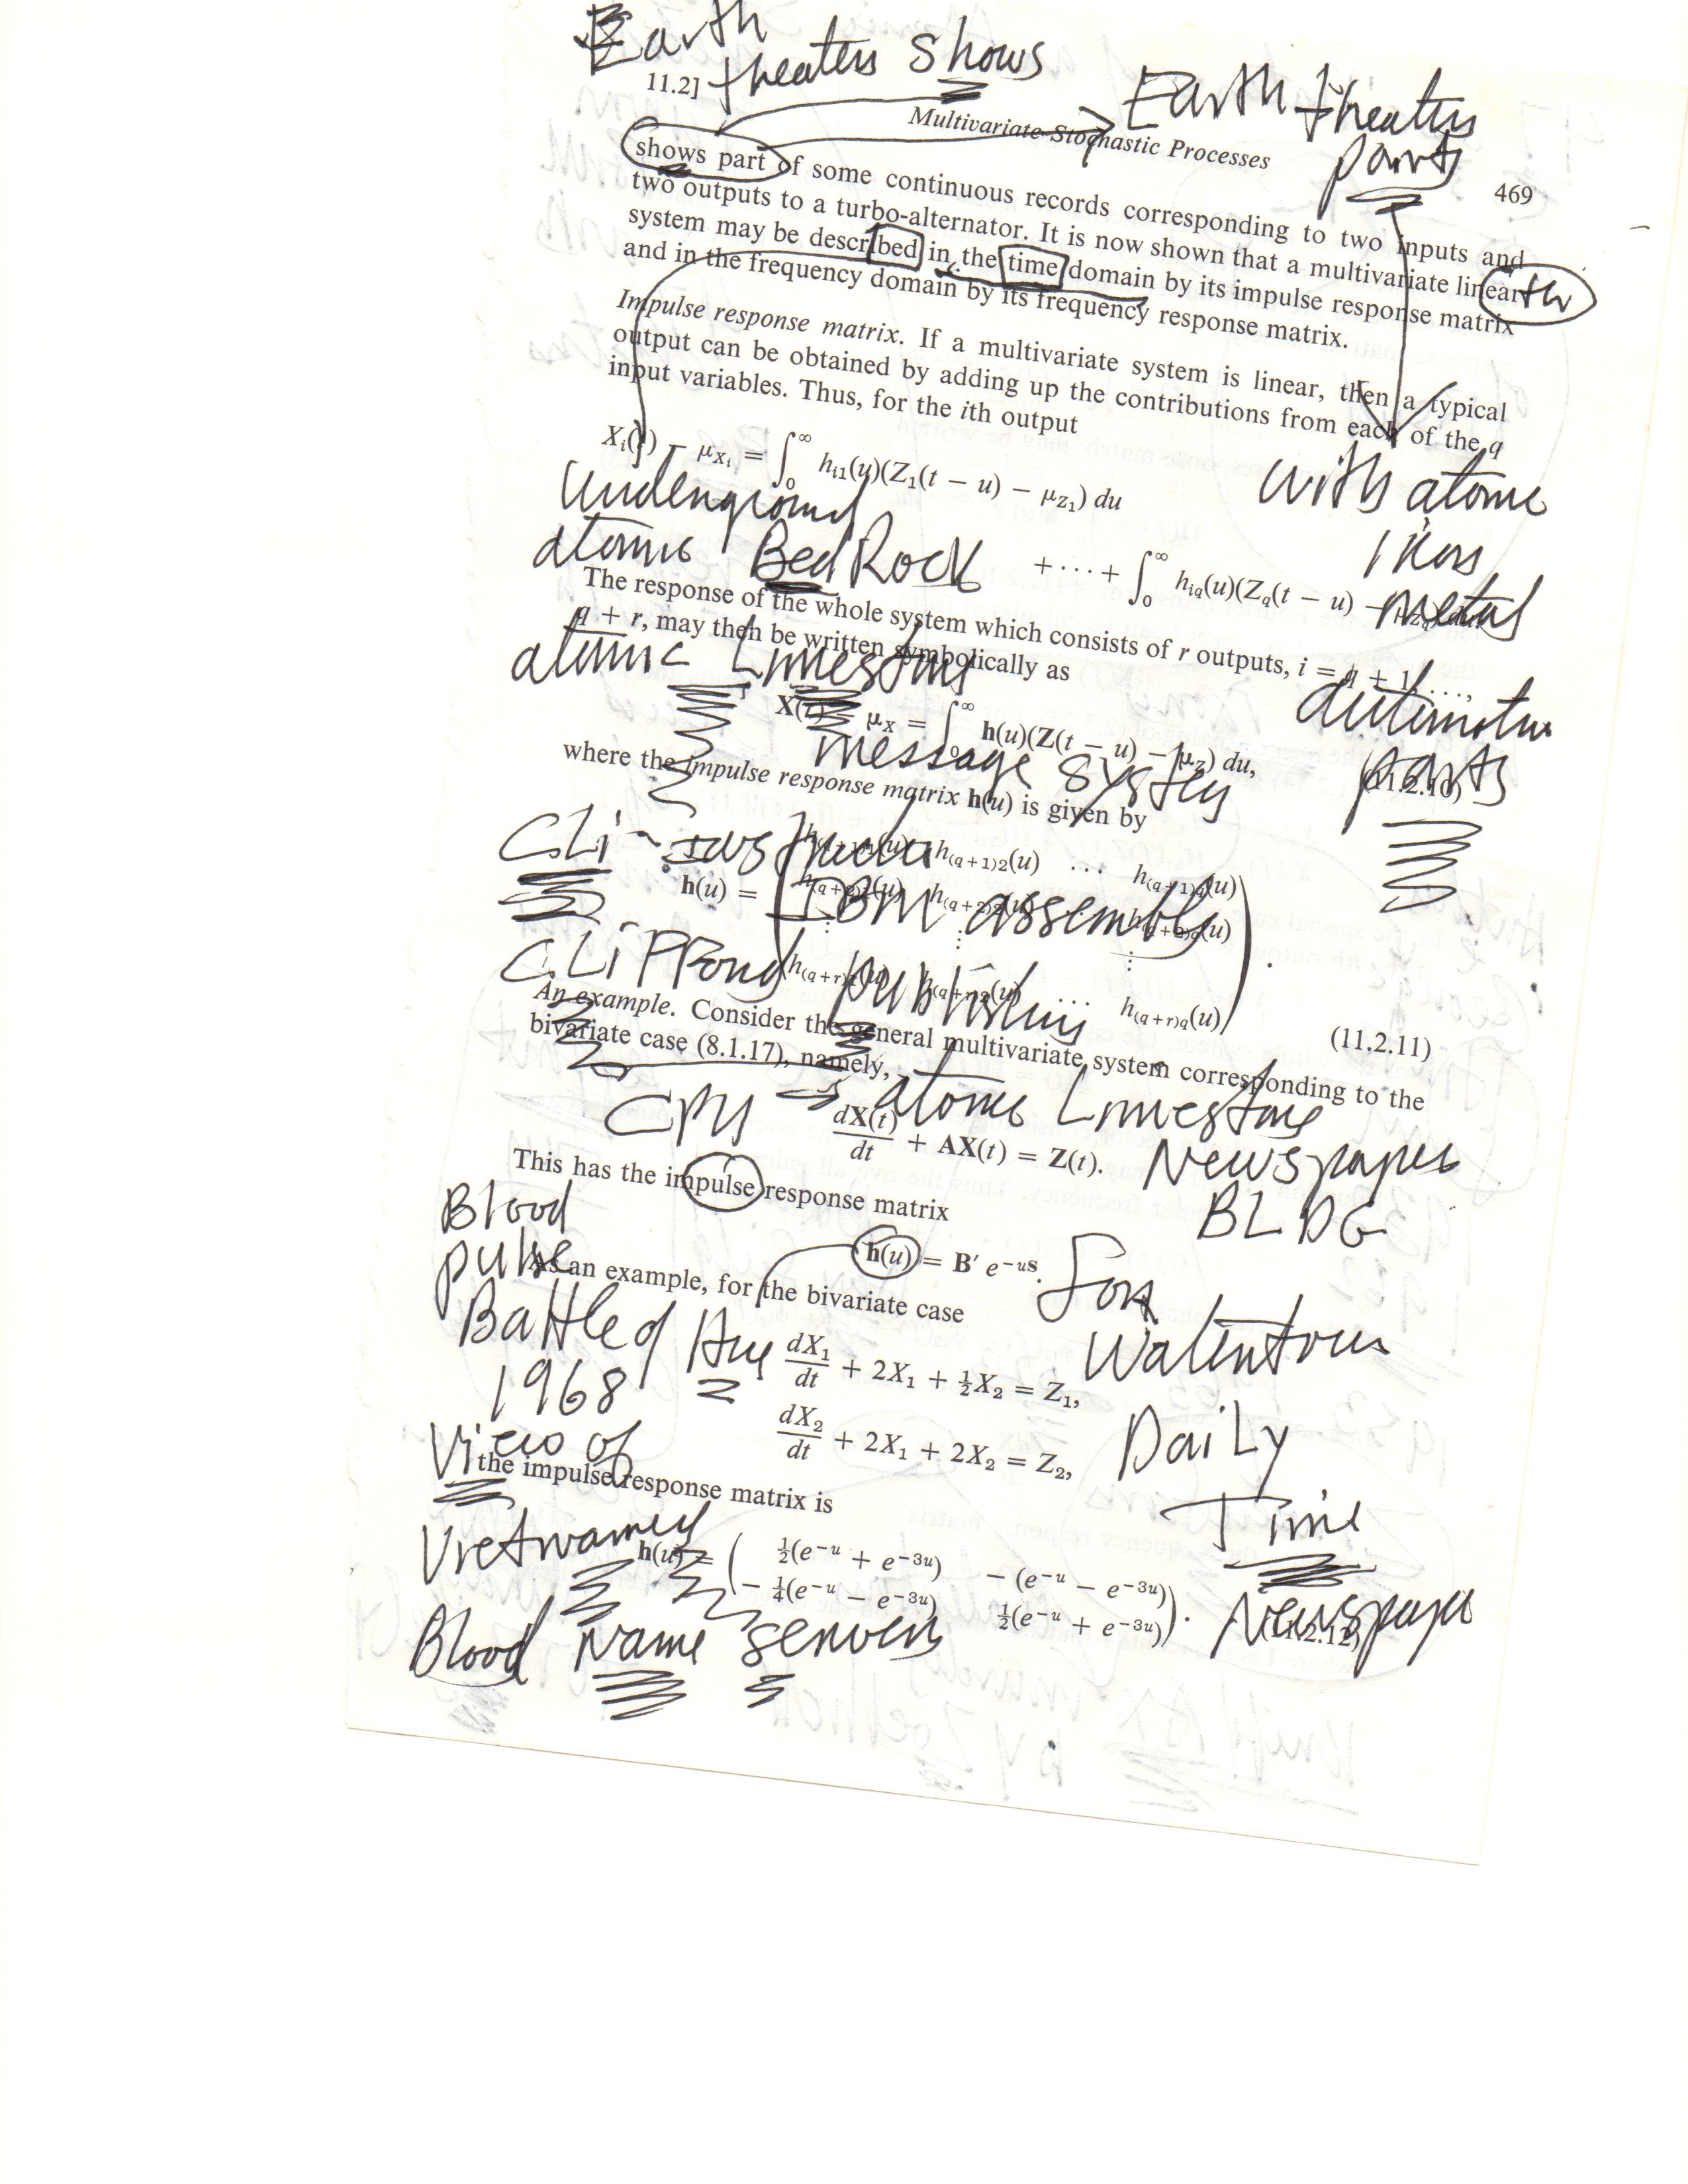 Earth
theaters shows
11.2]
Earth theaters
parts
Multivariate Stochastic Processes
469
shows part of some continuous records corresponding to two inputs and
two outputs to a turbo-alternator. It is now shown that a multivariate linear
system may be described in the time domain by its impulse response matrix
and in the frequency domain by its frequency response matrix.
Impulse response matrix. If a multivariate system is linear, then a typical
output can be obtained by adding up the contributions from each of the q
input variables. Thus, for the ith output
Xᵢ(t) − μ_Xᵢ = ∫₀^∞ hᵢ₁(u)(Z₁(t − u) − μ_Z₁) du
Underground
with atomic
atomic BedRock
+ ··· + ∫₀^∞ h_iq(u)(Z_q(t − u) −
metal
The response of the whole system which consists of r outputs, i = q + 1, ...,
q + r, may then be written symbolically as
atomic Limestone
automotive
X(t) − μ_X = ∫₀^∞ h(u)(Z(t − u) − μ_Z) du,
(11.2.10)
message system
parts
where the impulse response matrix h(u) is given by
CLi
h(u) = ( h_(q+1)1(u) h_(q+1)2(u) ... h_(q+1)q(u)
h_(q+2)1(u) h_(q+2)2(u) ... h_(q+2)q(u)
⋮ ⋮ ⋮
h_(q+r)1(u) h_(q+r)2(u) ... h_(q+r)q(u) ) .
IBM assembly
CLiPPond publishing
(11.2.11)
An example. Consider the general multivariate system corresponding to the
bivariate case (8.1.17), namely,
CPU → atomic Limestone
dX(t)/dt + AX(t) = Z(t).
Newspaper
BLDG
This has the impulse response matrix
Blood
pulse
h(u) = B′ e^−uS.
For
As an example, for the bivariate case
Battle of Hue
1968
Watertown
dX₁/dt + 2X₁ + ½X₂ = Z₁,
dX₂/dt + 2X₁ + 2X₂ = Z₂,
Daily
View of
the impulse response matrix is
Time
Vietnamese
h(u) = ( ½(e^−u + e^−3u) − (e^−u − e^−3u)
− ¼(e^−u − e^−3u) ½(e^−u + e^−3u) ) .
(11.2.12)
Newspaper
Blood Name servers